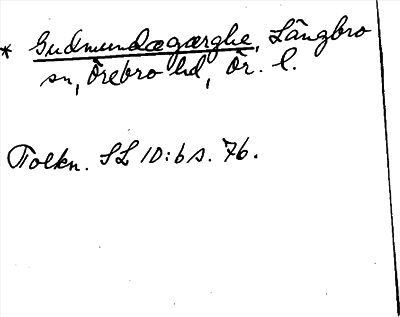 * Gudmundagærghe, Långbro
sn, Örebro hd, Ör. l.
Tolkn. SL 10:6 s. 76.